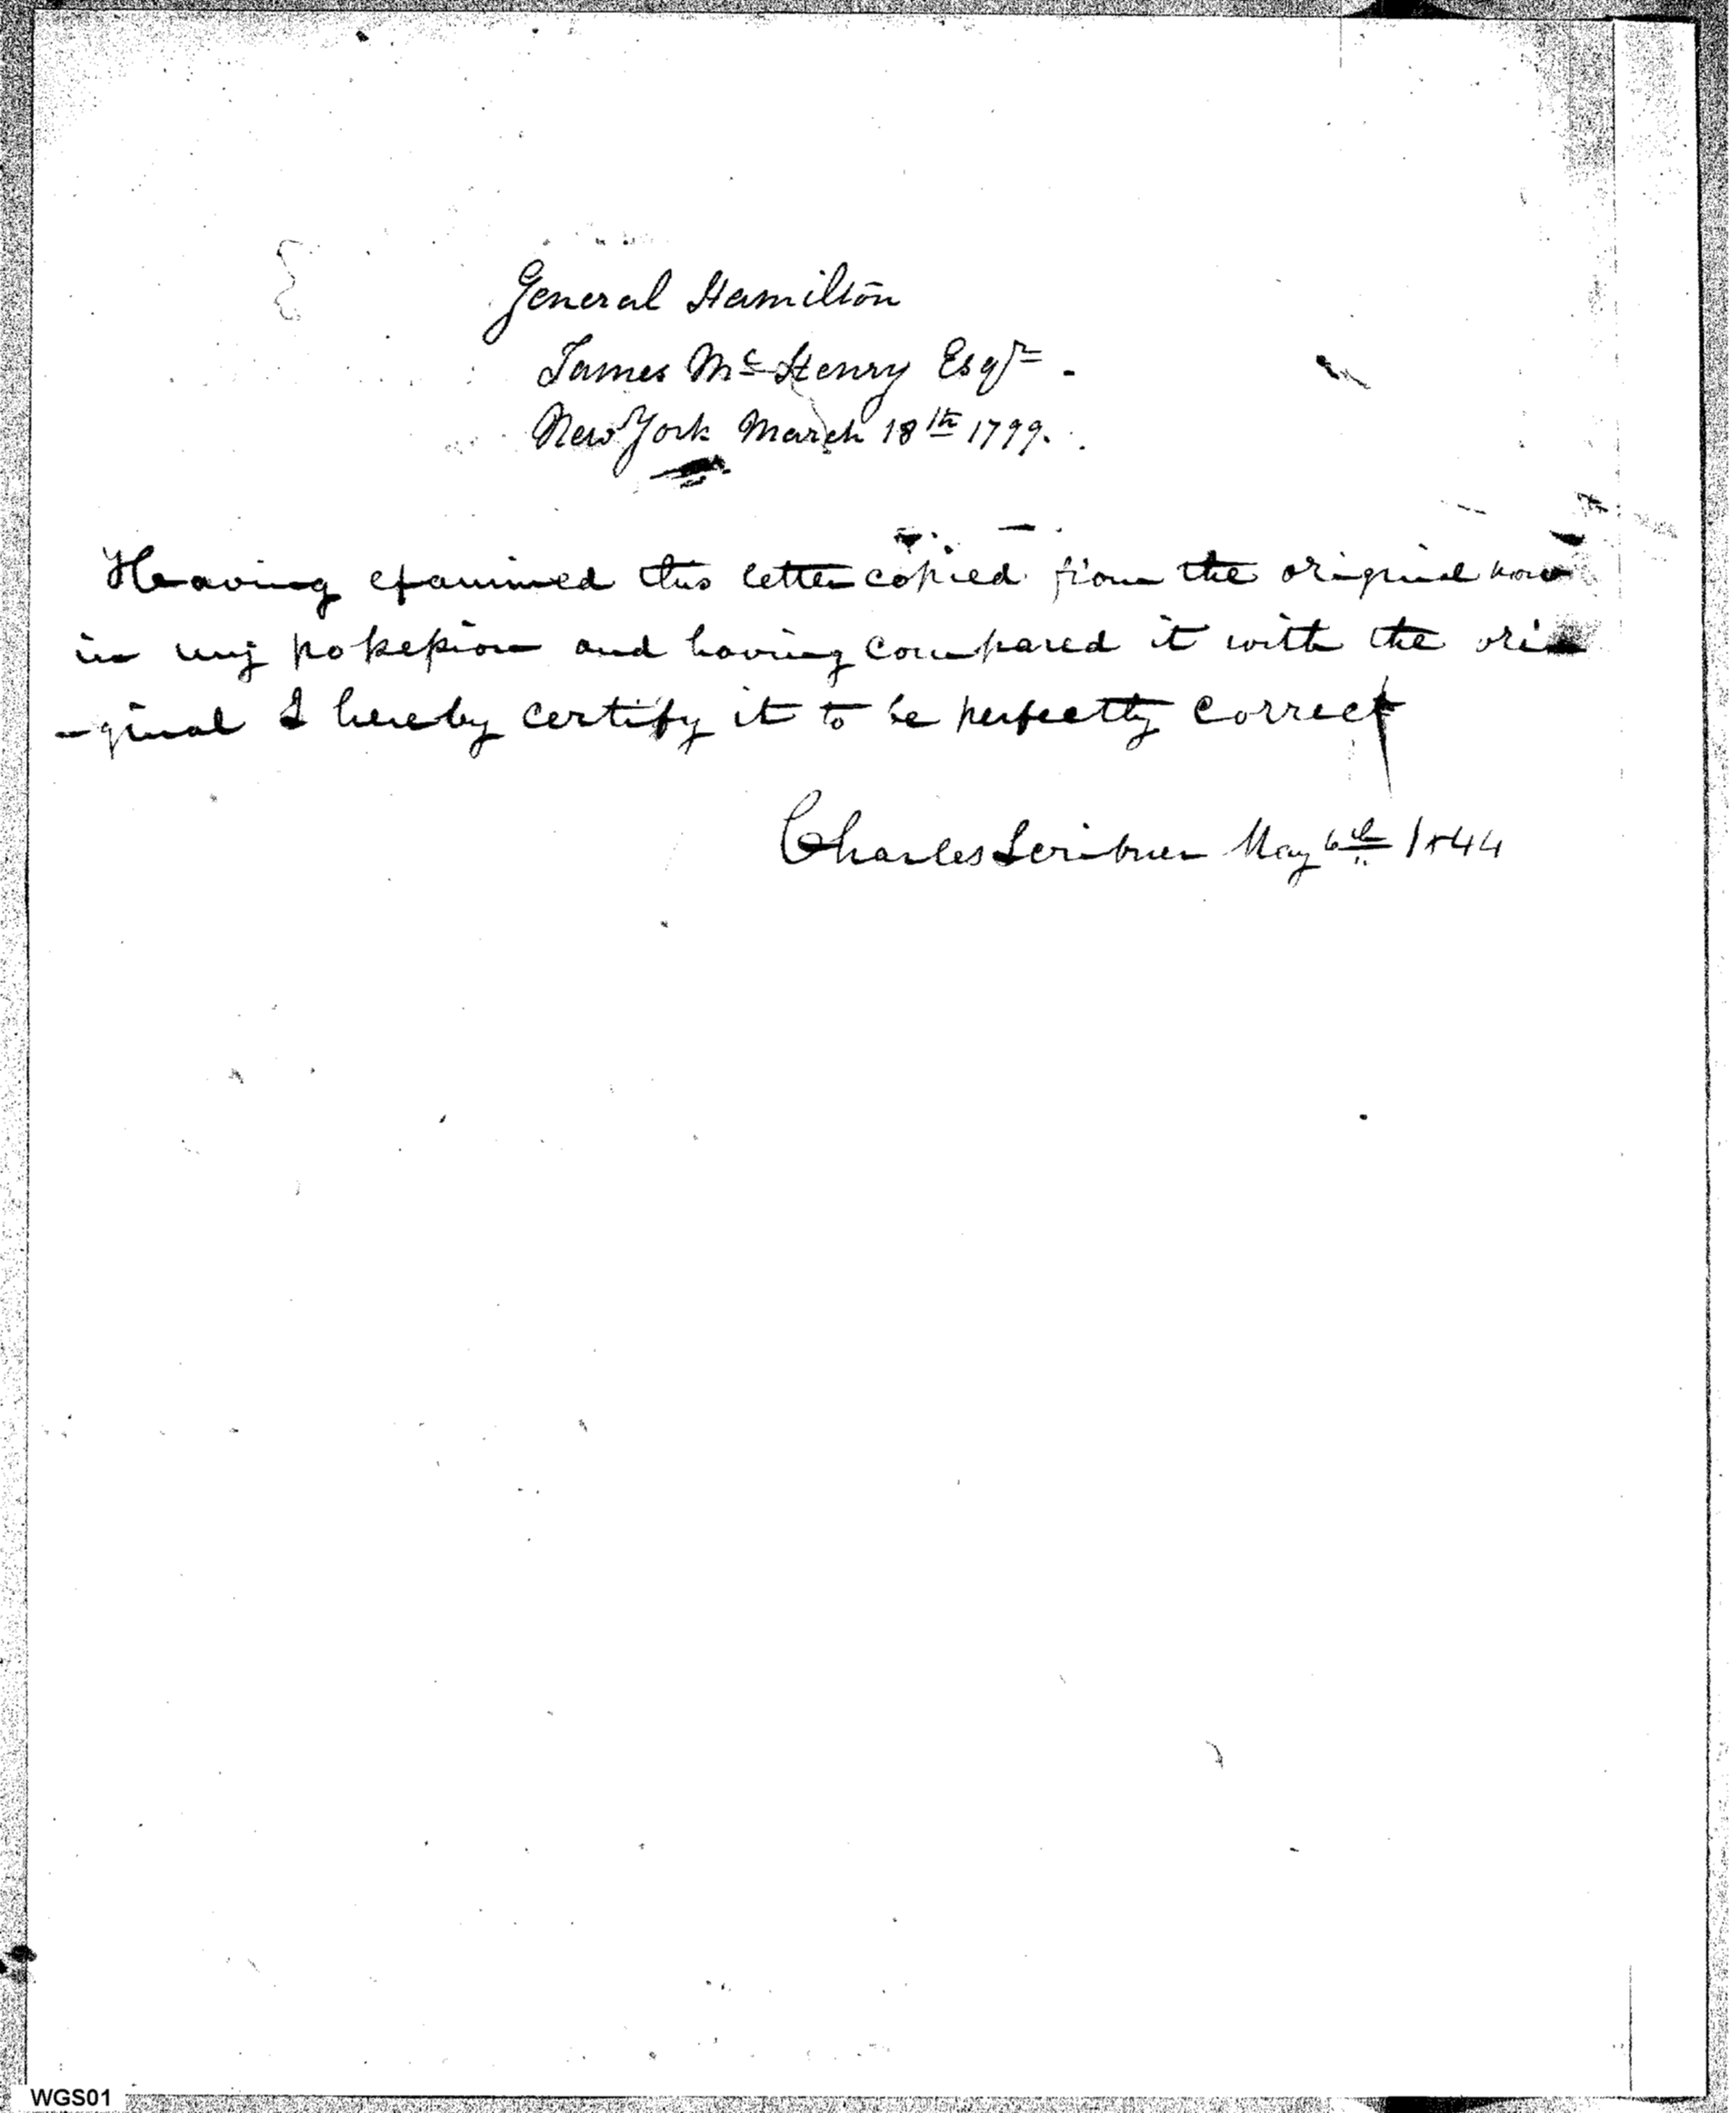 General Hamilton
James McHenry Esqr.
New York March 18th 1799.
Having examined this letter copied from the original now
in my possession and having compared it with the ori
-ginal I hereby certify it to be perfectly correct
Charles Scribner May 6th 1844
WGS01